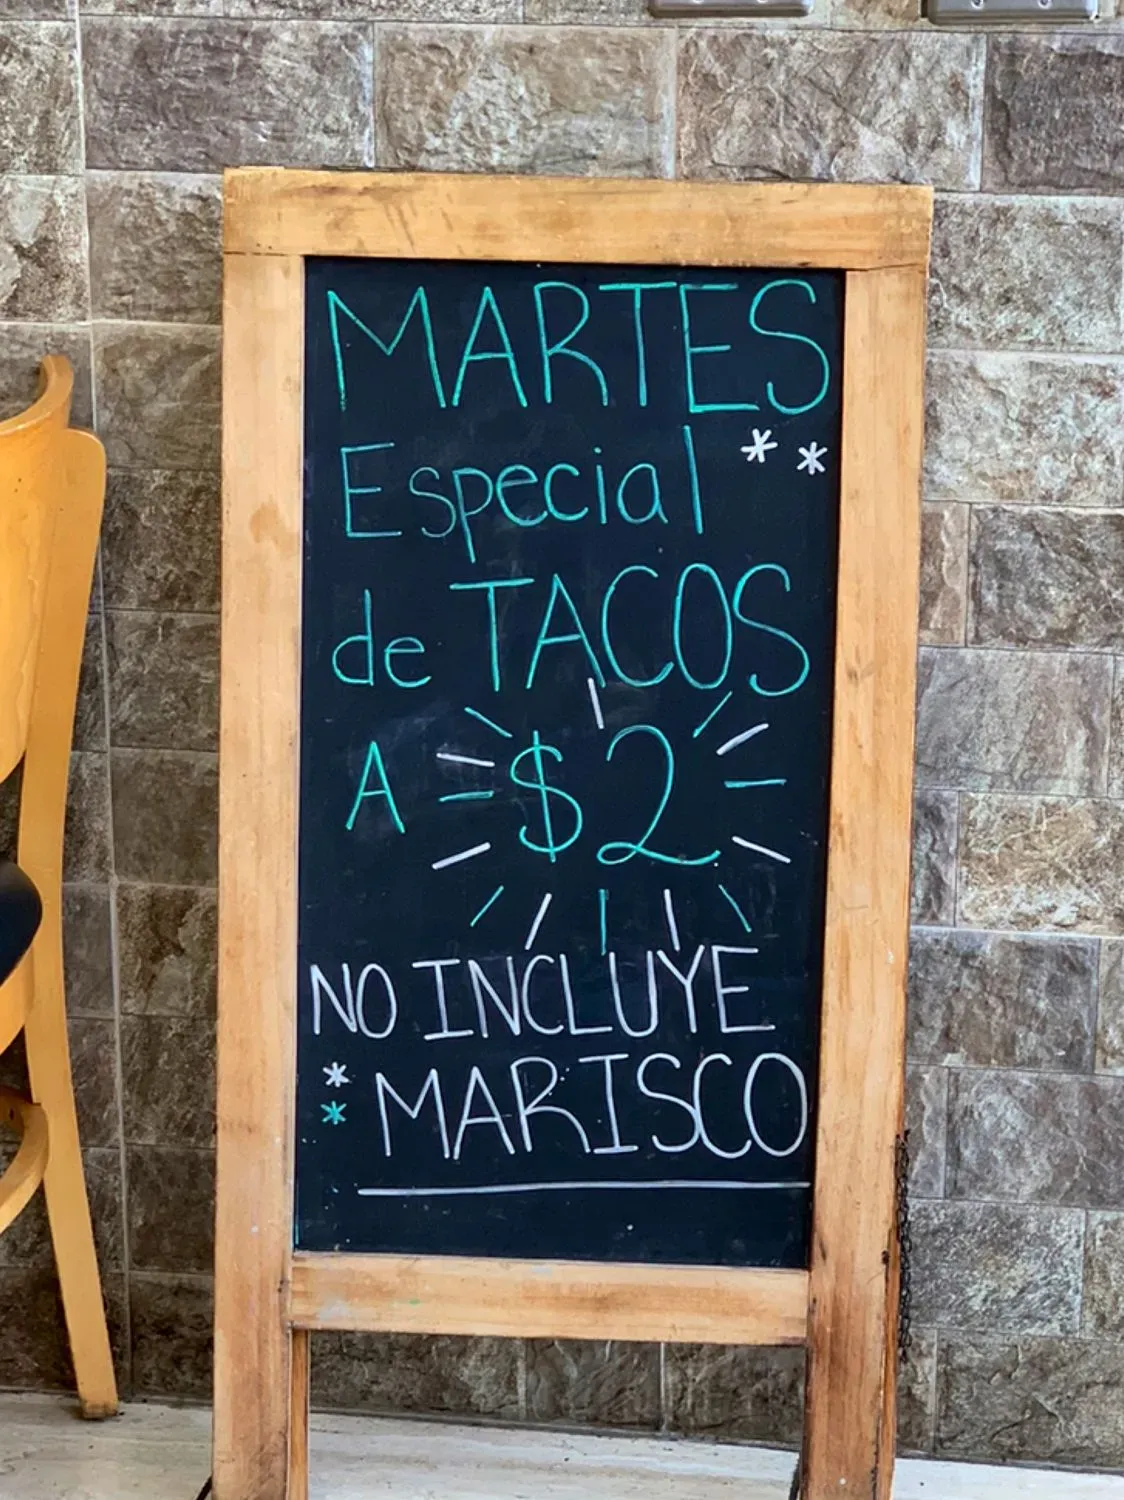 MARTES
Especial **
de TACOS
A $2
NO INCLUYE
** MARISCO